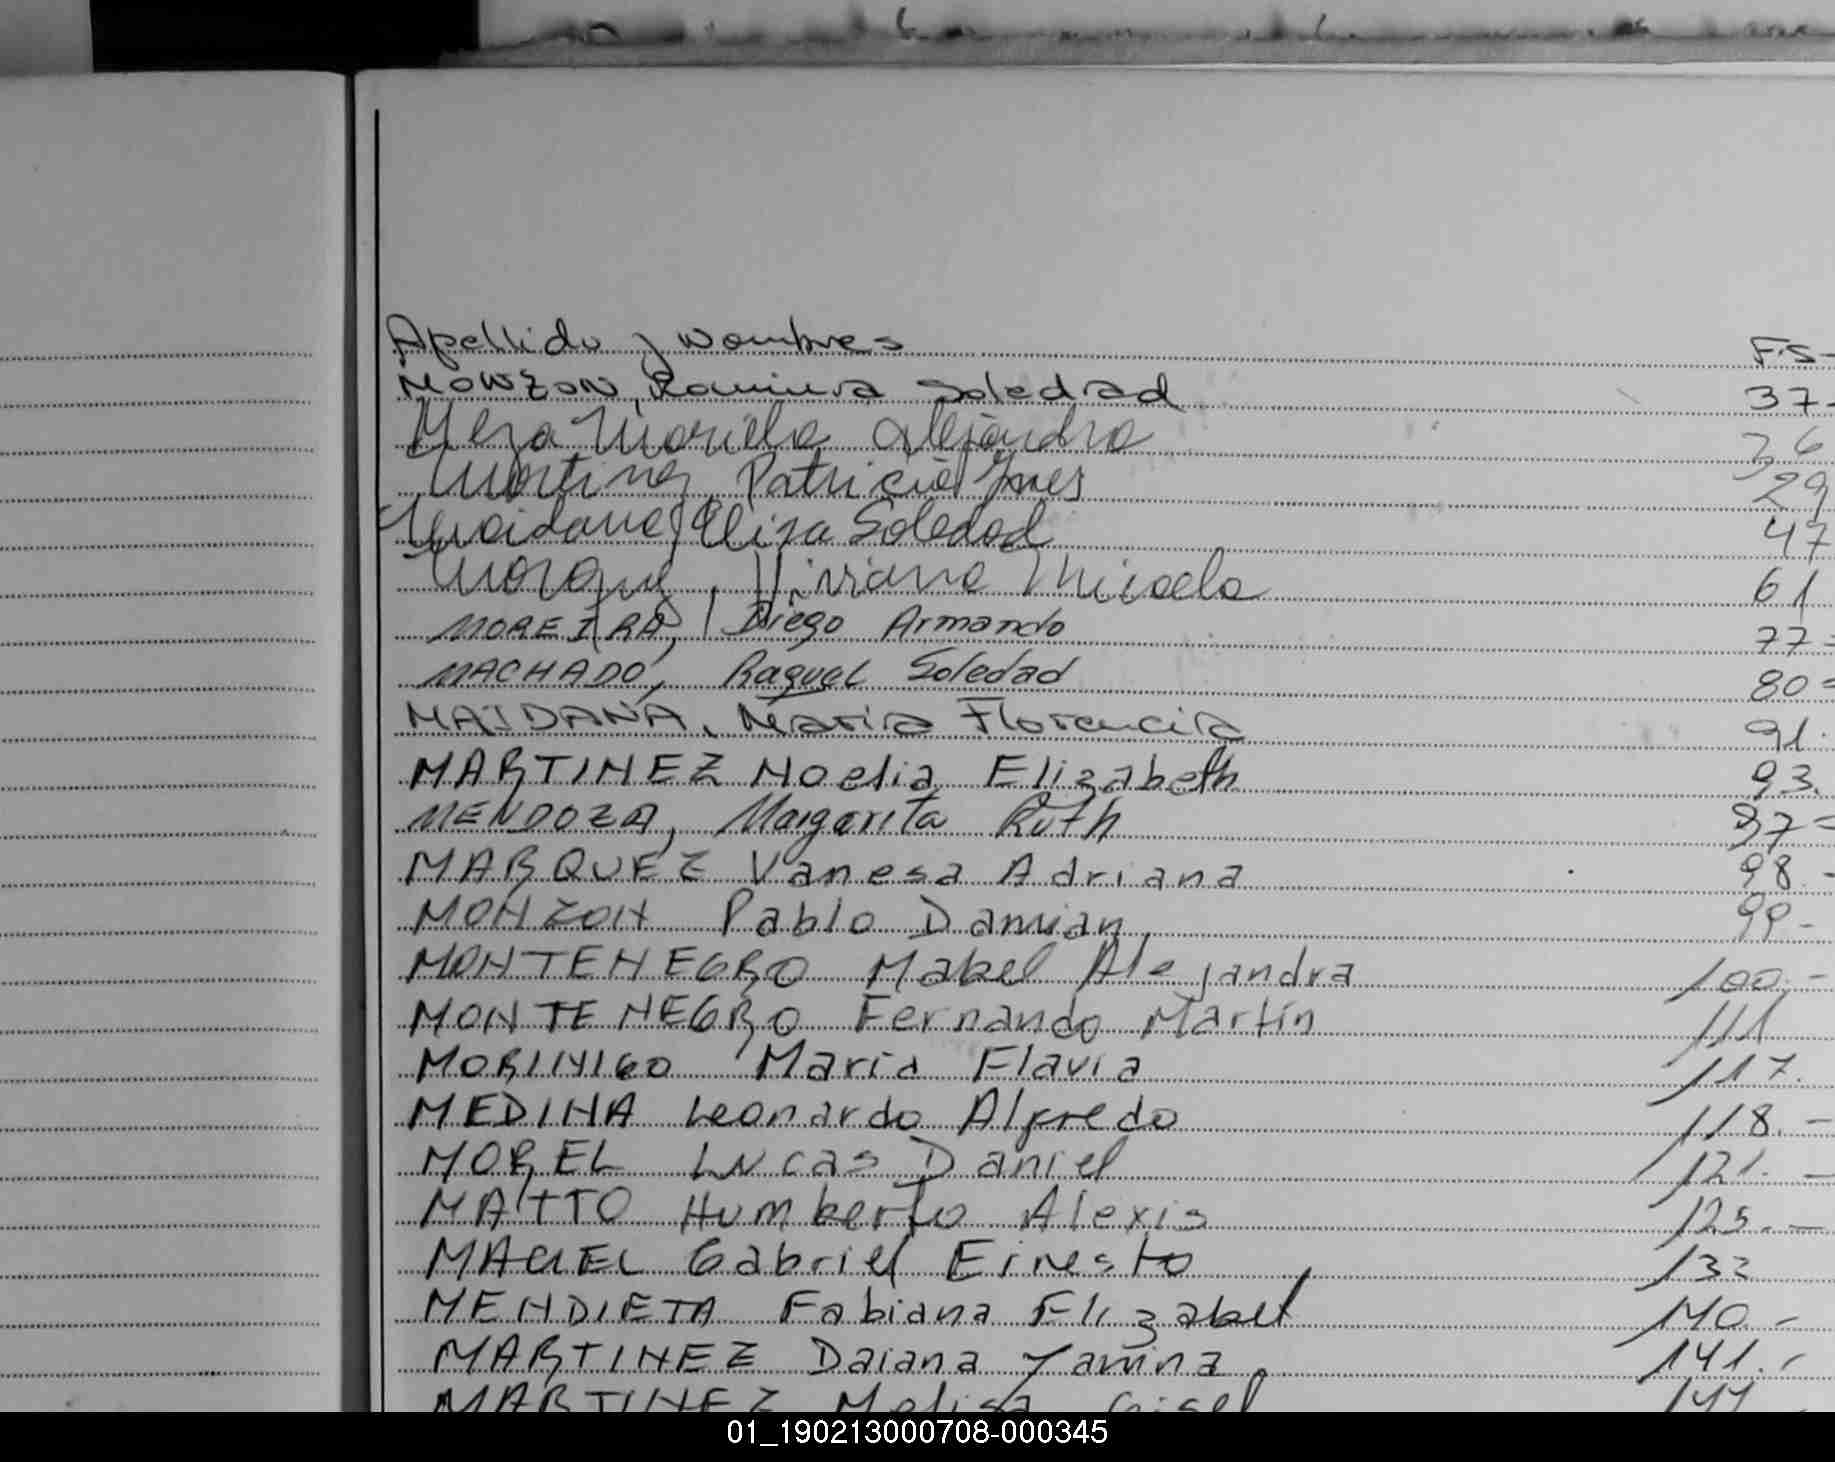 Apellido y Nombres Fs-
MONZON, Romina Soledad 37-
Meza Mariela Alejandra 26
Martinez Patricia Ines 29
Maidana, Eliza Soledad 47
Viviana Micaela 61
MOREIRA, Diego Armando 77=
MACHADO, Raquel Soledad 80=
MAIDANA, Maria Florencia 91.
MARTINEZ Noelia Elizabeth 93.
MENDOZA, Margarita Ruth 97=
MARQUEZ Vanesa Adriana 98.-
MONZON Pablo Damian 99-
MONTENEGRO Mabel Alejandra 100.-
MONTENEGRO Fernando Martín 111
MORINIGO Maria Flavia 117.
MEDINA Leonardo Alfredo 118.-
MOREL Lucas Daniel 121.-
MATTO Humberto Alexis 125.-
MACIEL Gabriel Ernesto 133
MENDIETA Fabiana Elizabet 140.-
MARTINEZ Daiana Yamina 141.-
MARTINEZ Melisa Gisel
01_190213000708-000345